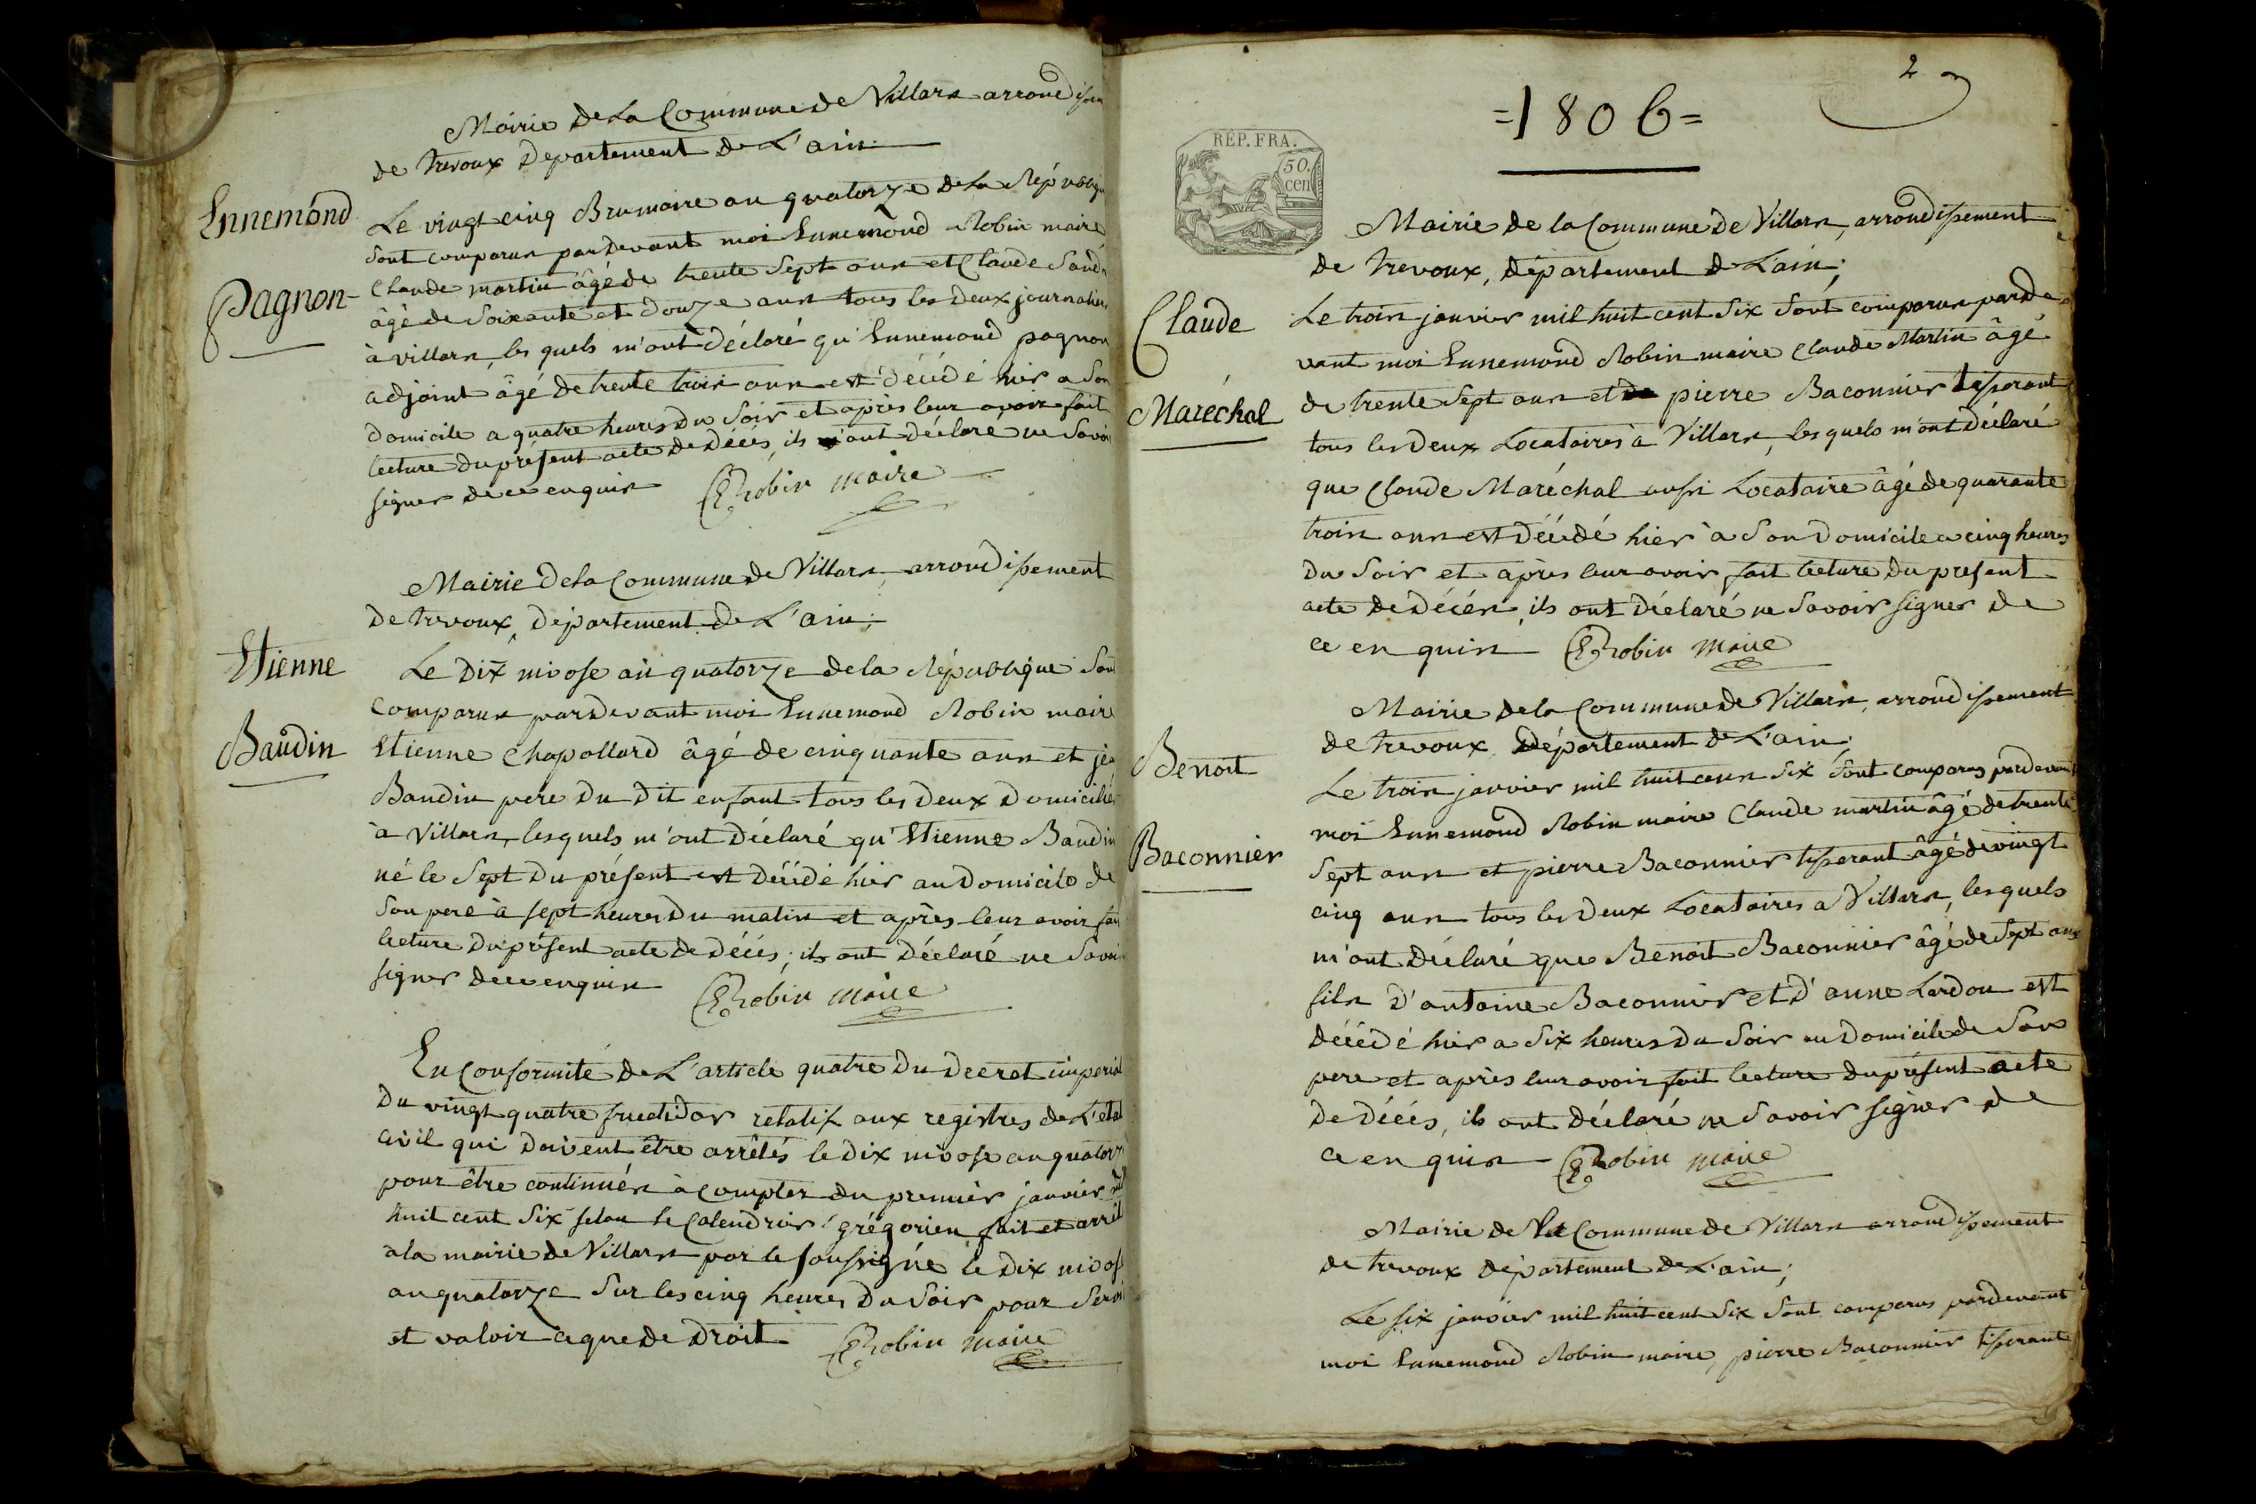 Mairie de La Commune de Villars arrondissem
de Trevoux Departement de L'ain
Ennemond
Pagnon
Le vingt cinq Brumaire an quatorze de La République
sont comparus pardevant moi Ennemond Robin maire
Claude martin âgé de trente sept ans et Claude
âgé de soixante et douze ans tous les deux journaliers
à villars, les quels m'ont déclaré qu'Ennemond pagnon
adjoint âgé de trente trois ans est décédé hier a son
domicile a quatre heures du soir et après leur avoir fait
lecture du présent acte de décés, ils m'ont déclaré ne savoir
signer de ce enquis ERobin maire
Mairie de la Commune de Villars, arrondissement
de Trevoux, département de L'ain;
Etienne
Baudin
Le dix nivose an quatorze de la République sont
comparus pardevant moi Ennemond Robin maire
Etienne Chapollard âgé de cinquante ans et jean
Baudin pere du dit enfant tous les deux domiciliés
à Villars, lesquels m'ont déclaré qu'Etienne Baudin
né le sept du présent est décédé hier au domicile de
son pere à sept heures du matin et après leur avoir fait
lecture du présent acte de décés; ils ont déclaré ne savoir
signer de ce enquis ERobin maire
En conformité de L'article quatre du decret imperial
du vingt quatre fructidor relatif aux registres de L'etat
civil qui doivent être arrêtés le dix nivose an quatorze
pour être continués à compter du premier janvier mil
huit cent six selon le Calendrier grégorien fait et arrêté
a la mairie de Villars par le soussigné le dix nivose
an quatorze sur les cinq heures du soir pour servir
et valoir ce que de droit ERobin maire
2
=1806=
RÉP. FRA.
50.
cen
Mairie de la Commune de Villars, arrondissement
de Trevoux, département de L'ain;
Claude
Maréchal
Le trois janvier mil huit cent six sont comparus parde
vant moi Ennemond Robin maire Claude Martin âgé
de trente sept ans et de pierre Baconnier tisserant
tous les deux Locataires à Villars, les quels m'ont déclaré
que Claude Maréchal aussi Locataire âgé de quarante
trois ans est décédé hier à son domicile a cinq heures
du soir et après leur avoir fait lecture du présent
acte de décés, ils ont déclaré ne savoir signer de
ce enquis ERobin maire
Mairie de la Commune de Villars, arrondissement
de Trevoux, département de L'ain;
Benoit
Baconnier
Le trois janvier mil huit cens six sont comparus pardevant
moi Ennemond Robin maire Claude martin âgé de trente
sept ans et pierre Baconnier tisserant âgé de vingt
cinq ans tous les deux Locataires a Villars, lesquels
m'ont déclaré que Benoit Baconnier âgé de sept ans
fils d'antoine Baconnier et d'anne Lardon est
décédé hier a six heures du soir au domicile de son
pere et après leur avoir fait lecture du présent acte
de décés, ils ont déclaré ne savoir signer de
ce enquis ERobin maire
Mairie de la Commune de Villars arrondissement
de Trevoux département de L'ain;
Le six janvier mil huit cent six sont comparus pardevant
moi Ennemond Robin maire, pierre Baconnier tisserant